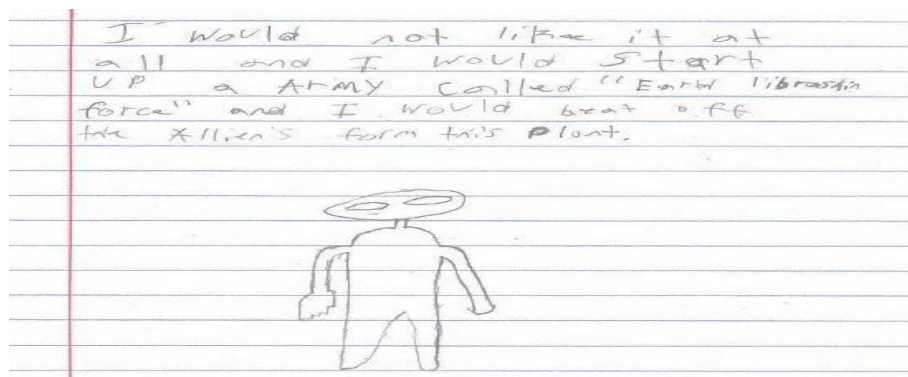 I would not like it at
all and I would start
up a Army called "Earth librashin
force" and I would beat off
the Allien's form this Plant.